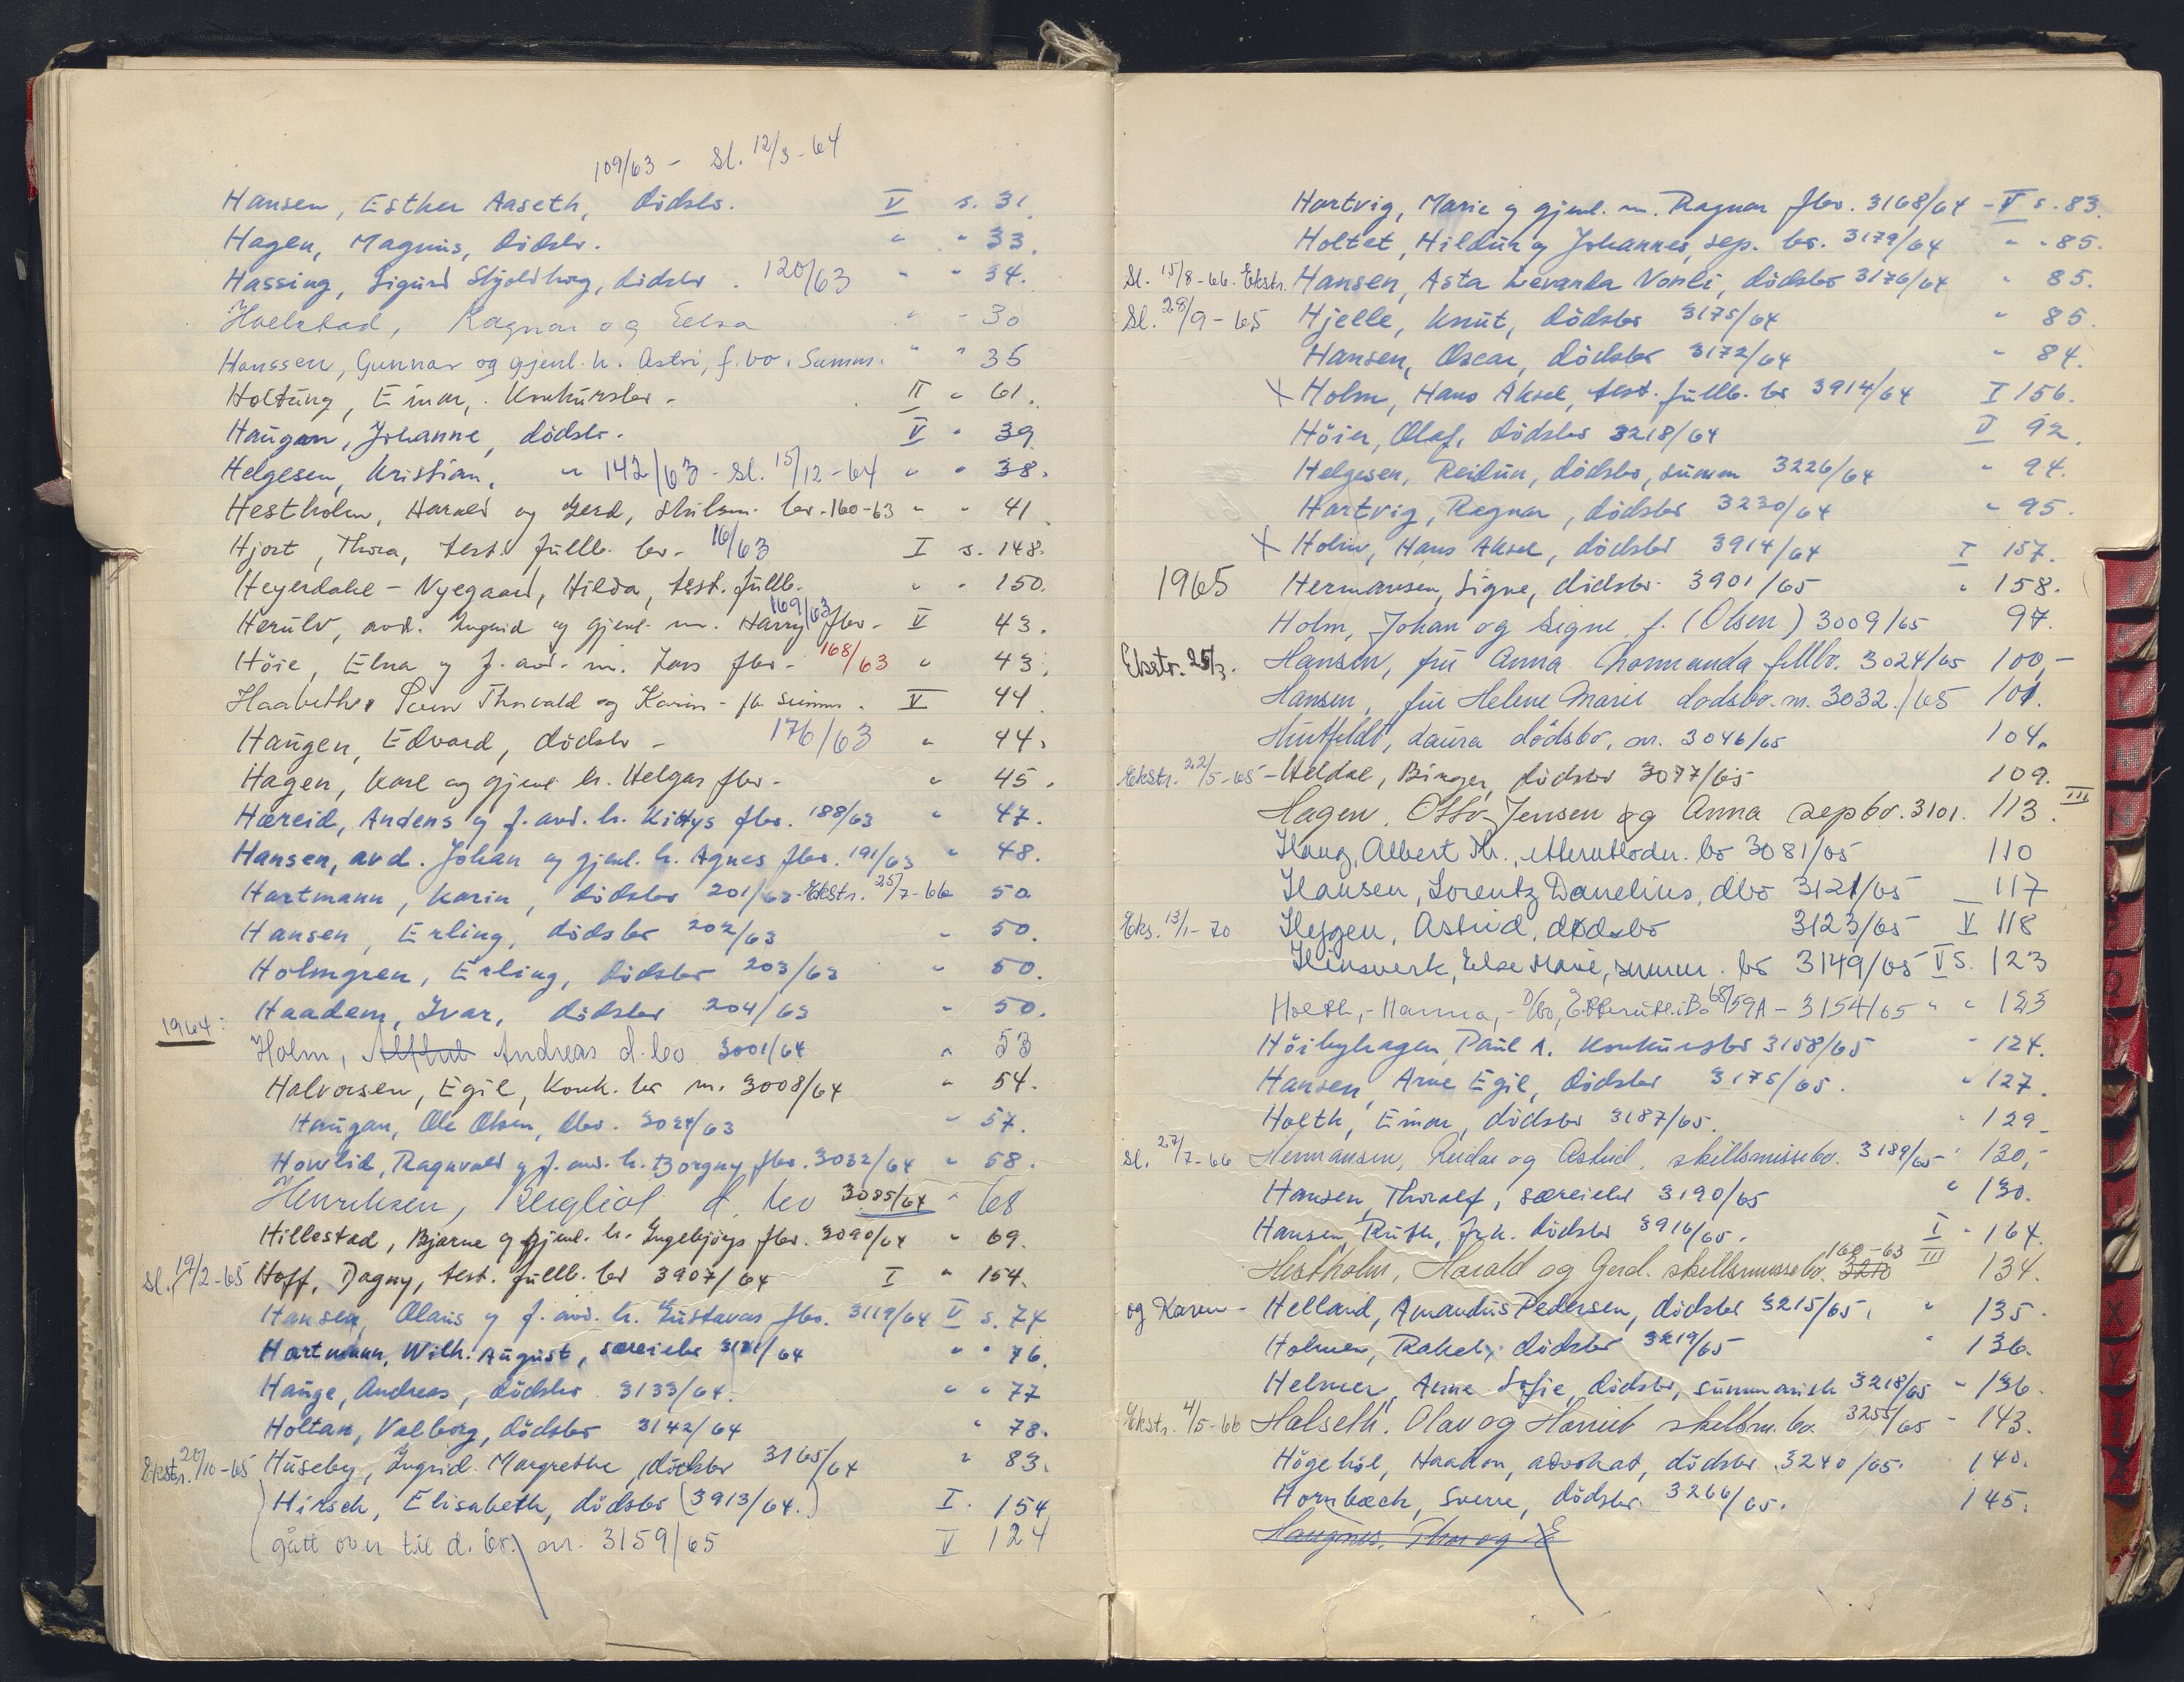 109/63 - Sl. 12/3-64
Hansen, Esther Aaseth, dödsbo. V s. 31.
Hagen, Magnus, dödsbo. " " 33.
Hassing, Sigurd Skjoldborg, dödsbo. 120/63 " " 34.
Hoelstad, Ragnar og Eelsa " - 30
Hanssen, Gunnar og gjenl. h. Astri, f.bo. Summ. " " 35
Holtung, Einar, Konkursbo. II " 61.
Haugan, Johanne, dödsbo. V " 39
Helgesen, Kristian, " 142/63 - Sl. 15/12-64 " " 38.
Hestholm, Harald og Gerd, skilsm. bo. 160-63 " " 41
Hjort, Thora, test. fullb. bo. 16/63 I s. 148.
Heyerdahl-Nyegaard, Hilda, test. fullb. " " 150.
Herulv, avd. Ingrid og gjenl. m. Harry fbo. 169/63 V 43.
Höie, Elna og f. avd. m. Lars fbo. 168/63 " 43.
Haabeth, Thorvald og Karin - fb summ. V 44
Haugen, Edvard, dödsbo - 176/63 " 44.
Hagen, Karl og gjenl. h. Helgas fbo. " 45.
Hæreid, Anders og f. avd. h. Kittys fbo. 188/63 " 47.
Hansen, avd. Johan og gjenl. h. Agnes fbo. 191/63 " 48.
Hartmann, Karin, dödsbo 201/63 - Ekstr. 25/7-66 50.
Hansen, Erling, dödsbo 202/63 " 50.
Holmgren, Erling, dödsbo 203/63 " 50.
Haadem, Ivar, dödsbo 204/63 " 50.
1964: Holm, Andreas d.bo 3001/64 " 53
Halvorsen, Egil, Konk. bo nr. 3008/64 " 54.
Haugan, Ole Olsen, dbo. 3024/63 " 57.
Howlid, Ragnvald og f. avd. h. Borgny fbo. 3032/64 " 58.
Henriksen, d. bo 3085/64 " 68
Hillestad, Bjarne og gjenl. h. Ingebjörgs fbo. 3090/64 " 69.
Sl. 19/2-65 Hoff, Dagny, test. fullb. bo 3907/64 I " 154.
Hansen, Olaus og f. avd. h. Gustavas fbo. 3119/64 V s. 74
Hartmann, Wilh. August, særeiebo 3121/64 " " 76.
Hauge, Andreas, dödsbo 3133/64. " " 77
Holtan, Valborg, dödsbo 3142/64 " 78.
Ekstr. 20/10-65 Huseby, Ingrid Margrethe, dödsbo 3165/64 " 83.
Hirsch, Elisabeth, dödsbo (3913/64.) I. 154
gått over til d. bo. nr. 3159/65 V 124
Hartvig, Marie og gjenl. m. Ragnar fbo. 3168/64 - V s. 83.
Holtet, Hildur og Johannes, sep. bo. 3179/64 " " 85.
Sl. 15/8-66. Ekstr. Hansen, Asta Levarda Vonli, dödsbo 3176/64 " 85.
Sl. 28/9-65 Hjelle, Knut, dödsbo 3175/64 " 85.
Hansen, Oscar, dödsbo 3172/64 " 84.
X Holm, Hans Aksel, test. fullb. bo 3914/64 I 156.
Höier, Olaf, dödsbo 3218/64 V 92.
Helgesen, Reidun, dödsbo, summ 3226/64 " 94.
Hartvig, Ragnar, dödsbo 3230/64 " 95.
X Holm, Hans Aksel, dödsbo 3914/64 I 157.
1965 Hermansen, Signe, dödsbo 3901/65 " 158.
Holm, Johan og Signe f. (Olsen) 3009/65 97.
Ekstr. 25/3. Hansen, fru Anna Normanda fellbo. 3024/65 100,-
Hansen, fru Helene Marie dødsbo. nr. 3032./65 101.
Huitfeldt, Laura dödsbo, nr. 3046/65 104.
Ekstr. 22/5-65 - Heldal, Birger, dödsbo 3077/65 109.
Hagen, Otto Jensen og Anna sepbo. 3101. 113. III
Haug, Albert Th., etterutlodn. bo 3081/65 110
Hansen, Lorentz Danelius, dbo 3121/65 117
Eks. 13/1-70 Heggen, Astrid, dødsbo 3123/65 V 118
Hinsverk, Else Marie, summ. bo 3149/65 V s. 123
Holth, - Hanna, - D/bo, Etterutl. i Bo 68/59A - 3154/65 " " 123
Höibyhagen, Paul A. Konkursbo 3158/65 " 124.
Hansen, Arne Egil, dödsbo 3175/65. " 127.
Holth, Einar, dödsbo 3187/65. " 129
Sl. 27/7-66 Hermansen, Reidar og Astrid, skillsmissebo. 3189/65 " 130,-
Hansen, Thoralf, særeiebo 3190/65 " 130.
Hansen, Ruth, frk. dödsbo 3916/65. I " 164.
Hestholm, Harald og Gerd. skillsmissebo. 3210 160-63 III 134.
og Karen - Helland, Amandus Pedersen, dödsbo 3215/65. " 135.
Holmen, Rakel, dödsbo 3219/65 " 136.
Helmer, Anne Sofie, dödsbo, summarisk 3218/65 " 136.
Ekstr. 4/5-66 Halseth, Olav og Harriet skillsm. bo. 3255/65 - 143.
Högehöl, Haakon, advokat, dödsbo 3240/65. 140.
Hornbæck, Sverre, dödsbo. 3266/65. 145.
Haugnes, Thor og E